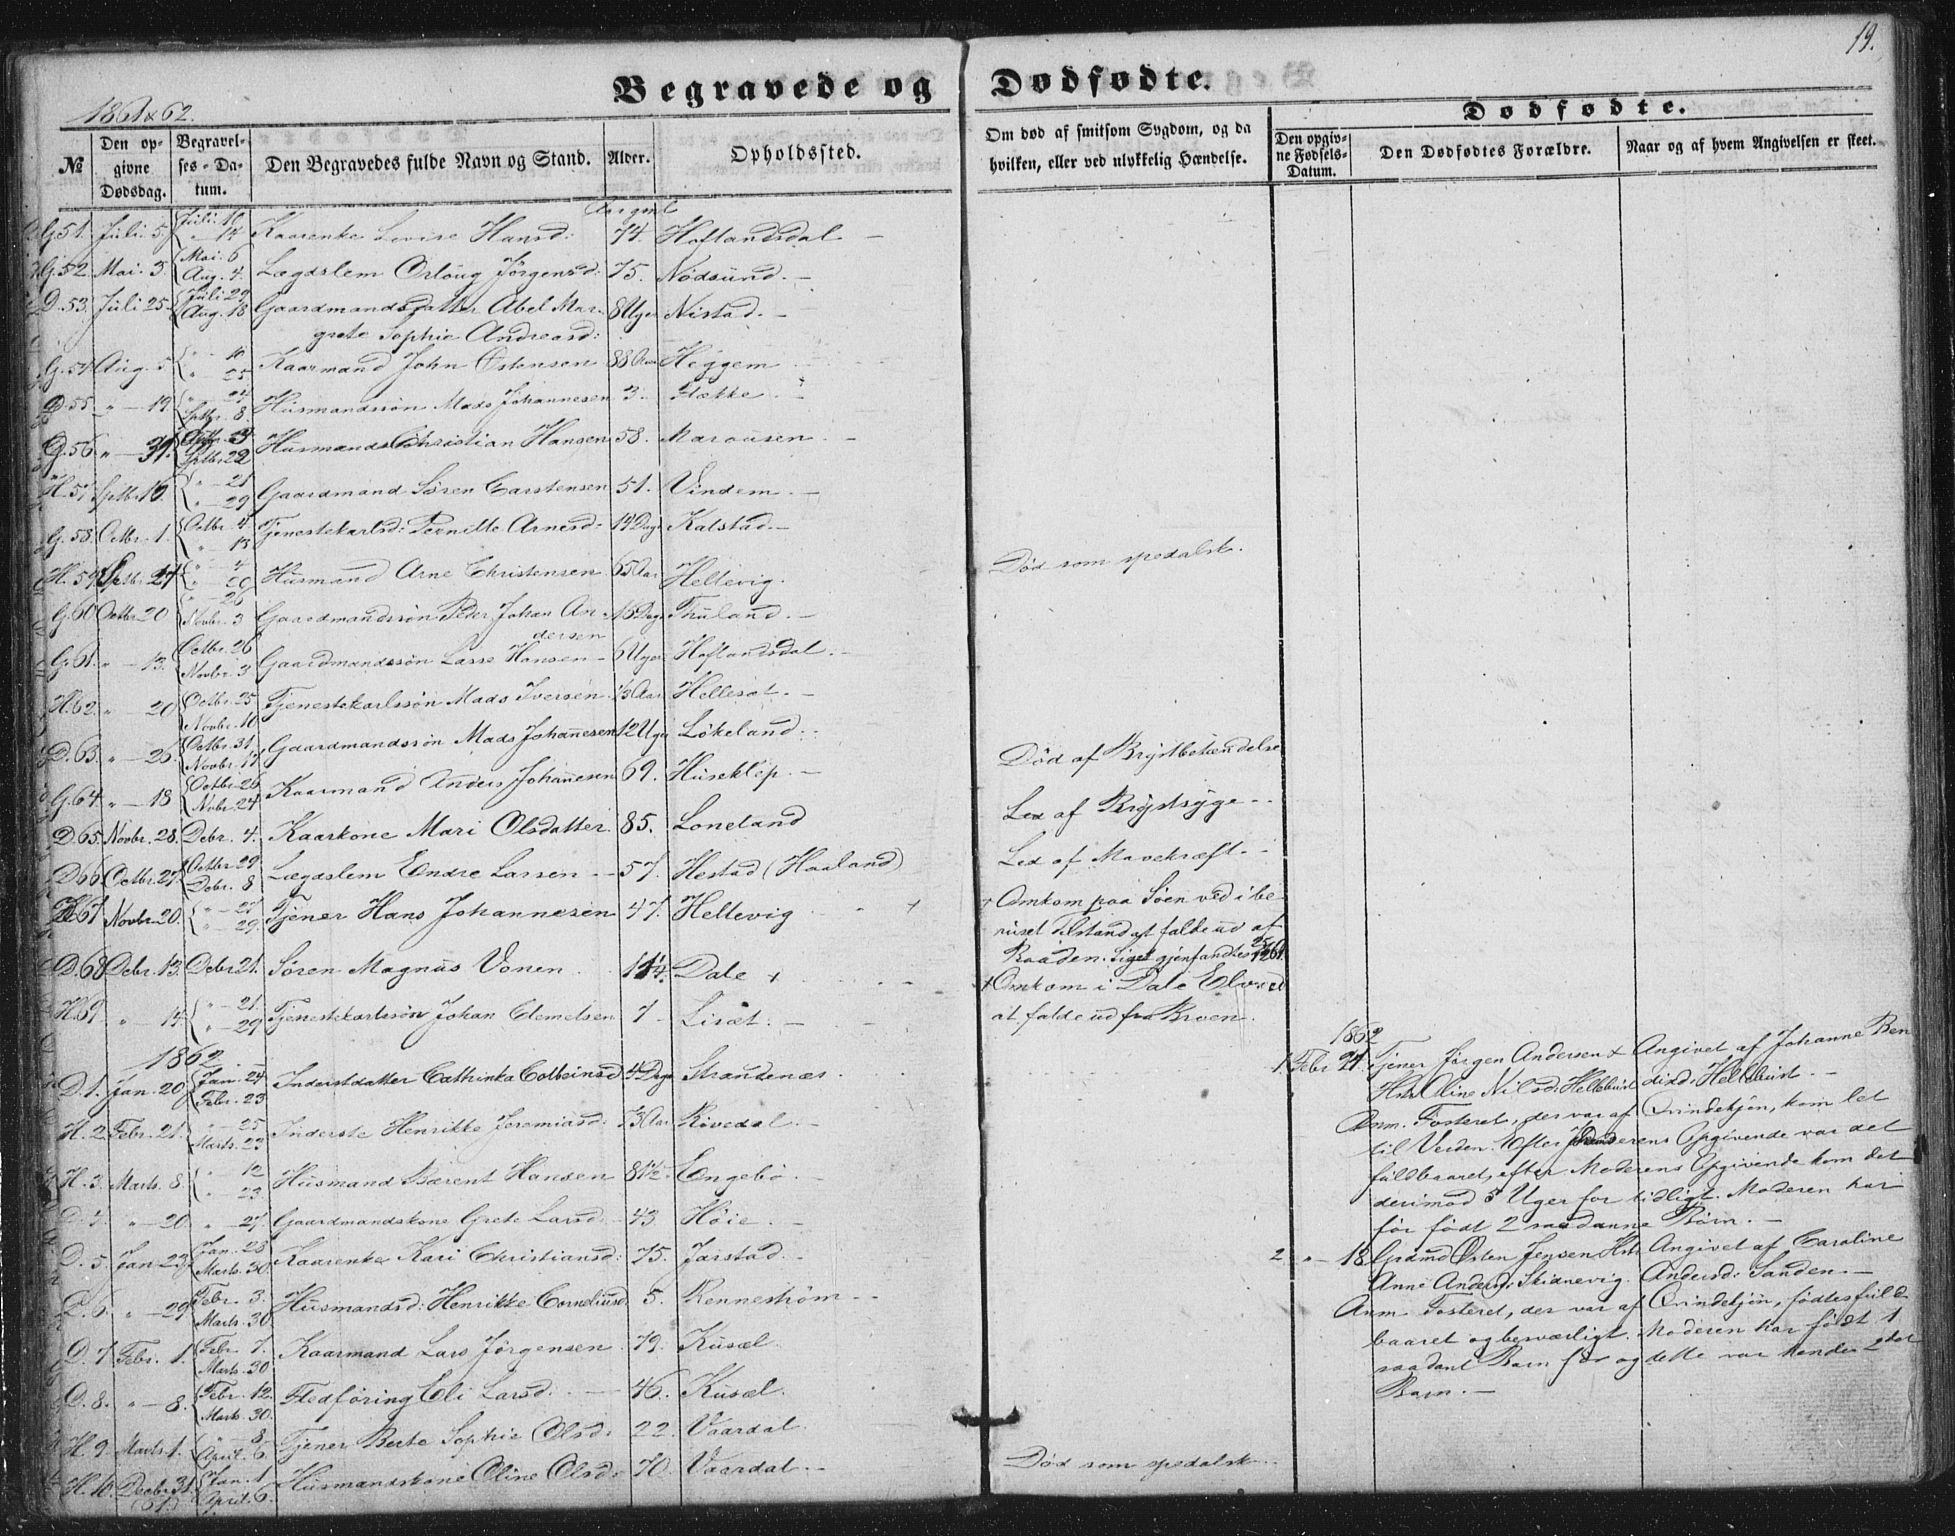 19.
Begravede og Dødfødte.
1861 & 62.
№ Den opgivne Dødsdag. Begravelses-Datum. Den Begravedes fulde Navn og Stand. Alder. Opholdssted.
Om død af smitsom Sygdom, og da hvilken, eller ved ulykkelig Hændelse.
Dødfødte.
Den opgivne Fødsels-Datum. Den Dødfødtes Forældre. Naar og af hvem Angivelsen er skeet.
G. 51. Juli 5 Juli 10 " 14 Kaarenke Lovise Hansd: 74. Hoflandsdal
G. 52. Mai. 3. Mai. 6 Aug. 4. Lægdslem Orloug Jørgensd: 75. Nödsund.
D. 53. Juli 25 Juli 29 Aug. 18 Gaardmandsdatter Abel Mar- 8 Uger Nistad.
grete Sophie Andreasd:
G. 54 Aug. 5 " 10 " 25 Kaarmand John Østensen 88 Aar Heggem
D. 55. " 19 " 24 Septbr. 8. Husmandssön Mads Johannesen 3. Flække
G. 56 " 31. Septbr. 22 Husmand Christian Hansen 58. Marousen
H. 57 Septbr. 16 " 21 " 29 Gaardmand Søren Carstensen 51. Vindem.
G. 58. Octbr. 1. Octbr. 4. " 13 Tjenestekarlsd: Pernille Arnesd. 14 Dage Kalstad.
H. 59 Septbr. 27 " 4 " 20 Husmand Arne Christensen 65 Aar Hellevig. Död som spedalsk.
G. 60 Octbr. 20 " 26 Novbr. 3 Gaardmandssön Peder Johan An- 16 Dage Thuland.
dersen
G. 61. " 13. Octbr. 26 Novbr. 3 Gaardmandssön Lasse Hansen 6 Uger Hoflandsdal.
H. 62 " 20 Octbr. 25 Novbr. 10 Tjenestekarlssön Mads Iversen ½ Aar Hellesæt.
D. 63. " 26. Octbr. 31. Novbr. 17. Gaardmandssön Mads Johannesen 12 Uger Lökeland. Död af Brystbetændelse
G. 64. " 18 Octbr. 26 Novbr. 24. Kaarmand Anders Johannesen 69. Huseklep. Led af Brystsyge.
D. 65. Novbr. 28. Debr. 4. Kaarkone Mari Olsdatter 85. Loneland Led af Mavekræft.
D. 66. Octbr. 27. Octbr. 29 Debr. 8 Lægdslem Endre Larsen 57. Hestad (Haaland)
H. 67 Novbr. 20. " 27 " 29. Tjener Hans Johannesen 47. Hellevig + + Omkom paa Söen ved i be-
ruset Tilstand at falde ud af
Baaden. Liget gjenfandtes
D. 68 Debr. 13. Debr 21. Søren Magnus Vonen 14. Dale + + Omkom i Dale Elv ved
at falde ud fra Broen.
H. 69 " 14. " 21. " 29 Tjenestekarlssön Johan Clemetsen 7 Lisæt.
1862.
D. 1. Jan. 20 Jan. 24 Febr. 23 Inderstdatter Cathrinka Colbeinsd 4 Dage Strandenæs
H. 2. Febr. 21. " 25 Marts. 23 Inderste Henrikke Jeremiasd: 73 Aar Rövedal.
H. 3. Marts. 8. " 12 " 23. Husmand Bærent Hansen 81½. Engebö.
" 20 " 27 Gaardmandskone Grete Larsd. 43. Höie.
D. 5. Jan. 23 Jan. 28 Marts. 30 Kaarenke Kari Christiansd: 75. Jarstad.
D. 6. " 29 Febr. 3. Marts. 30. Husmandsd: Henrikke Corneliusd. 5. Renneström
D. 7. Febr. 1. Febr. 7. Marts. 30 Kaarmand Lars Jörgensen 79. Kusæl.
D. 8. " 8. Febr. 12. Marts. 30. Fledföring Eli Larsd. 46. Kusæl.
H. 9. Marts 1. " 8. April. 6 Tjener Berte Sophie Olsd. 22. Vaardal.
H. 10. Decbr. 31. (61.) Jan. 1 April. 6. Husmandskone Oline Olsd: 70. Vaardal. Död som spedalsk.
1862
1 Febr 21. Tjener Jörgen Andersen & Angivet af Johanne Ben
Hstr Oline Nilsd: Hellebust disd: Hellebust.
Anm. Fosteret, der var af Qvindekjön, kom let
til Verden. Efter Opgivende var det
fuldbaaret, efter Moderens Opgivende kom det
derimod 5 Uger for tidligt. Moderen har
för födt 2 saadanne Börn.
2. " 18 Grdmd Østen Jensen Hstr Angivet af Caroline
Anne Andersd: Skidnevig. Andersd: Sanden.
Anm. Fosteret, der var af Qvindekjön, födtes fuld-
baaret og besværligt. Moderen har födt 1
saadant Barn för og dette var hendes 2det
Barn.